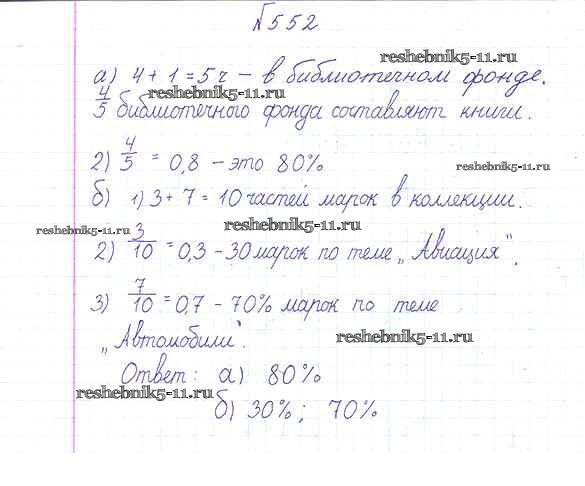 №552
reshebnik5-11.ru
а) 4 + 1 = 5 ч – в библиотечном фонде.
reshebnik5-11.ru
4/5 библиотечного фонда составляют книги.
2) 4/5 = 0,8 – это 80%
reshebnik5-11.ru
б) 1) 3 + 7 = 10 частей марок в коллекции.
reshebnik5-11.ru
reshebnik5-11.ru
2) 3/10 = 0,3 – 30 марок по теме „Авиация".
3) 7/10 = 0,7 – 70% марок по теме
„Автомобили".
reshebnik5-11.ru
Ответ: а) 80%
reshebnik5-11.ru
б) 30%; 70%